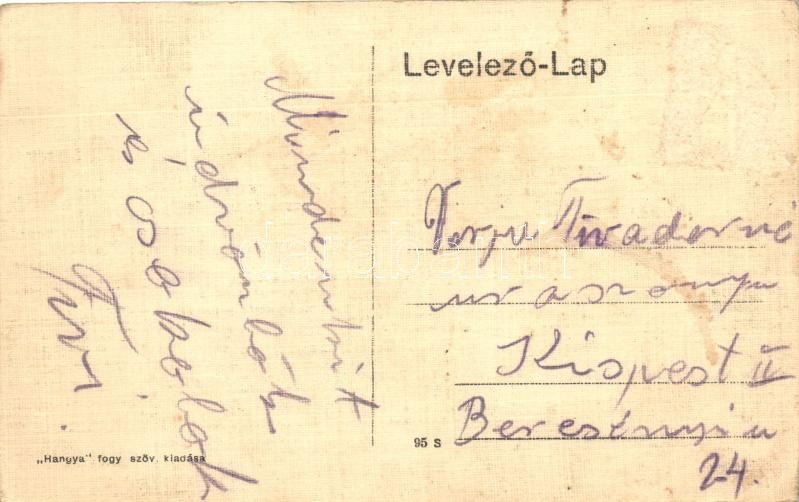 Levelező-Lap
Mindenkit
üdvözlök
és csokolok
Tivi.
Tivadarné
uraszonyu
Kispest II
Bercsényi u
24.
95 S
„Hangya" fogy. szöv. kiadása